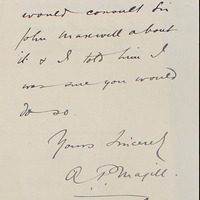 would consult Sir
John Maxwell about
it & I told him I
was sure you would
do so.
Yours Sincerely
A. P. Magill.